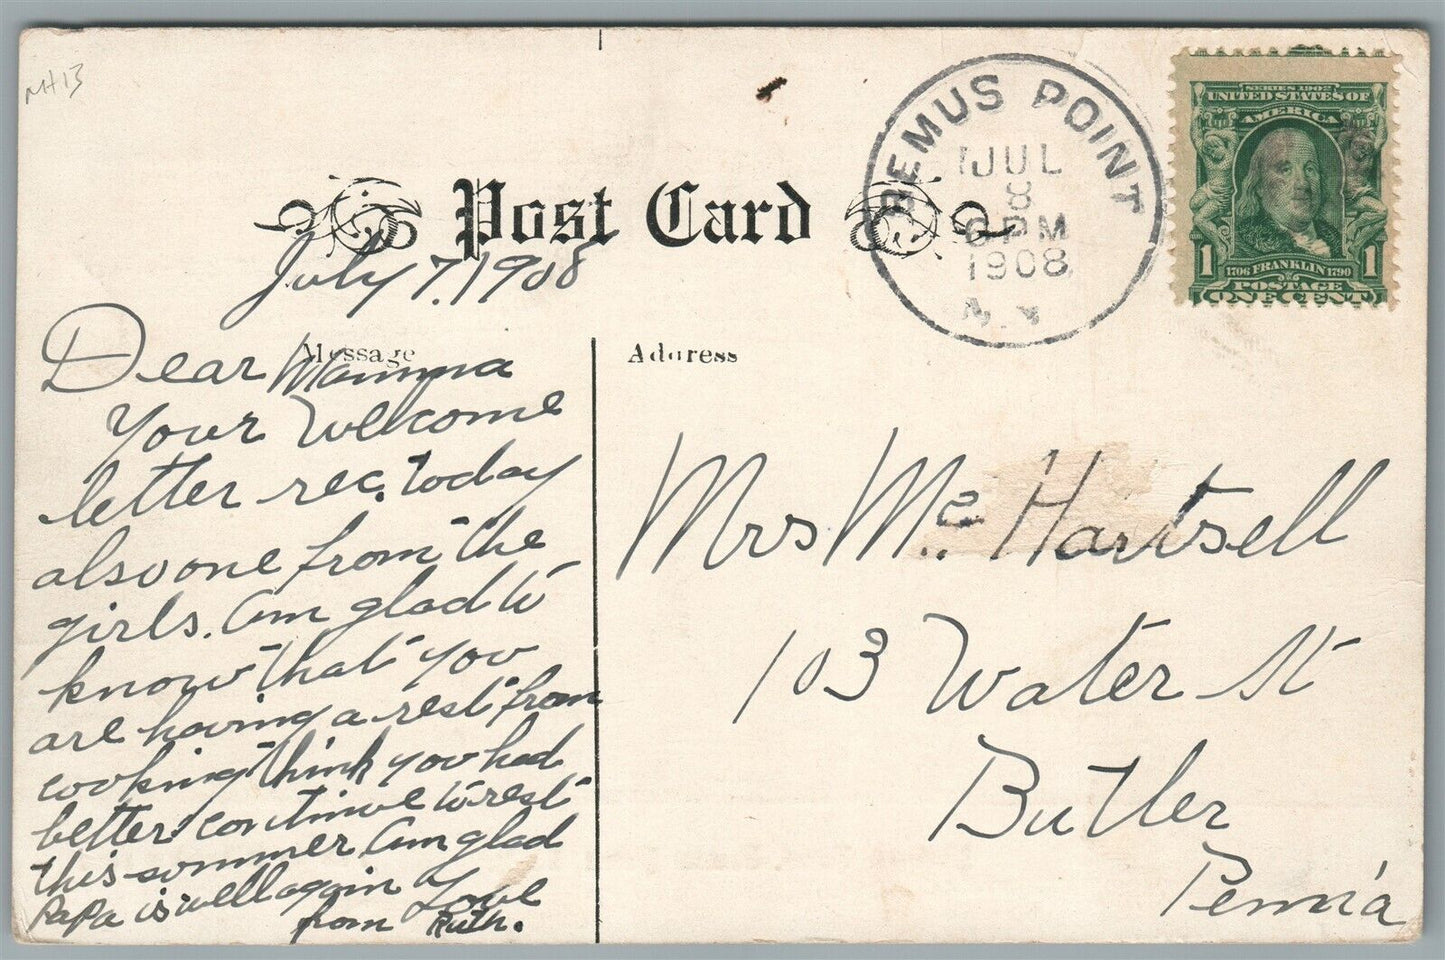 NH13
Post Card
BEMUS POINT
JUL
8
6 PM
1908
N.Y.
SERIES 1902
UNITED STATES OF
AMERICA
1 1706 FRANKLIN 1790 1
POSTAGE
ONE CENT
July 7, 1908
Message
Address
Dear Mamma
Your Welcome
letter rec. today
also one from the
girls. Am glad to
know that you
are having a rest from
cooking think you had
better continue to rest
this summer Am glad
PaPa is well again
Love
from Ruth.
Mrs Mc. Hartsell
103 Water St
Butler
Penn'a